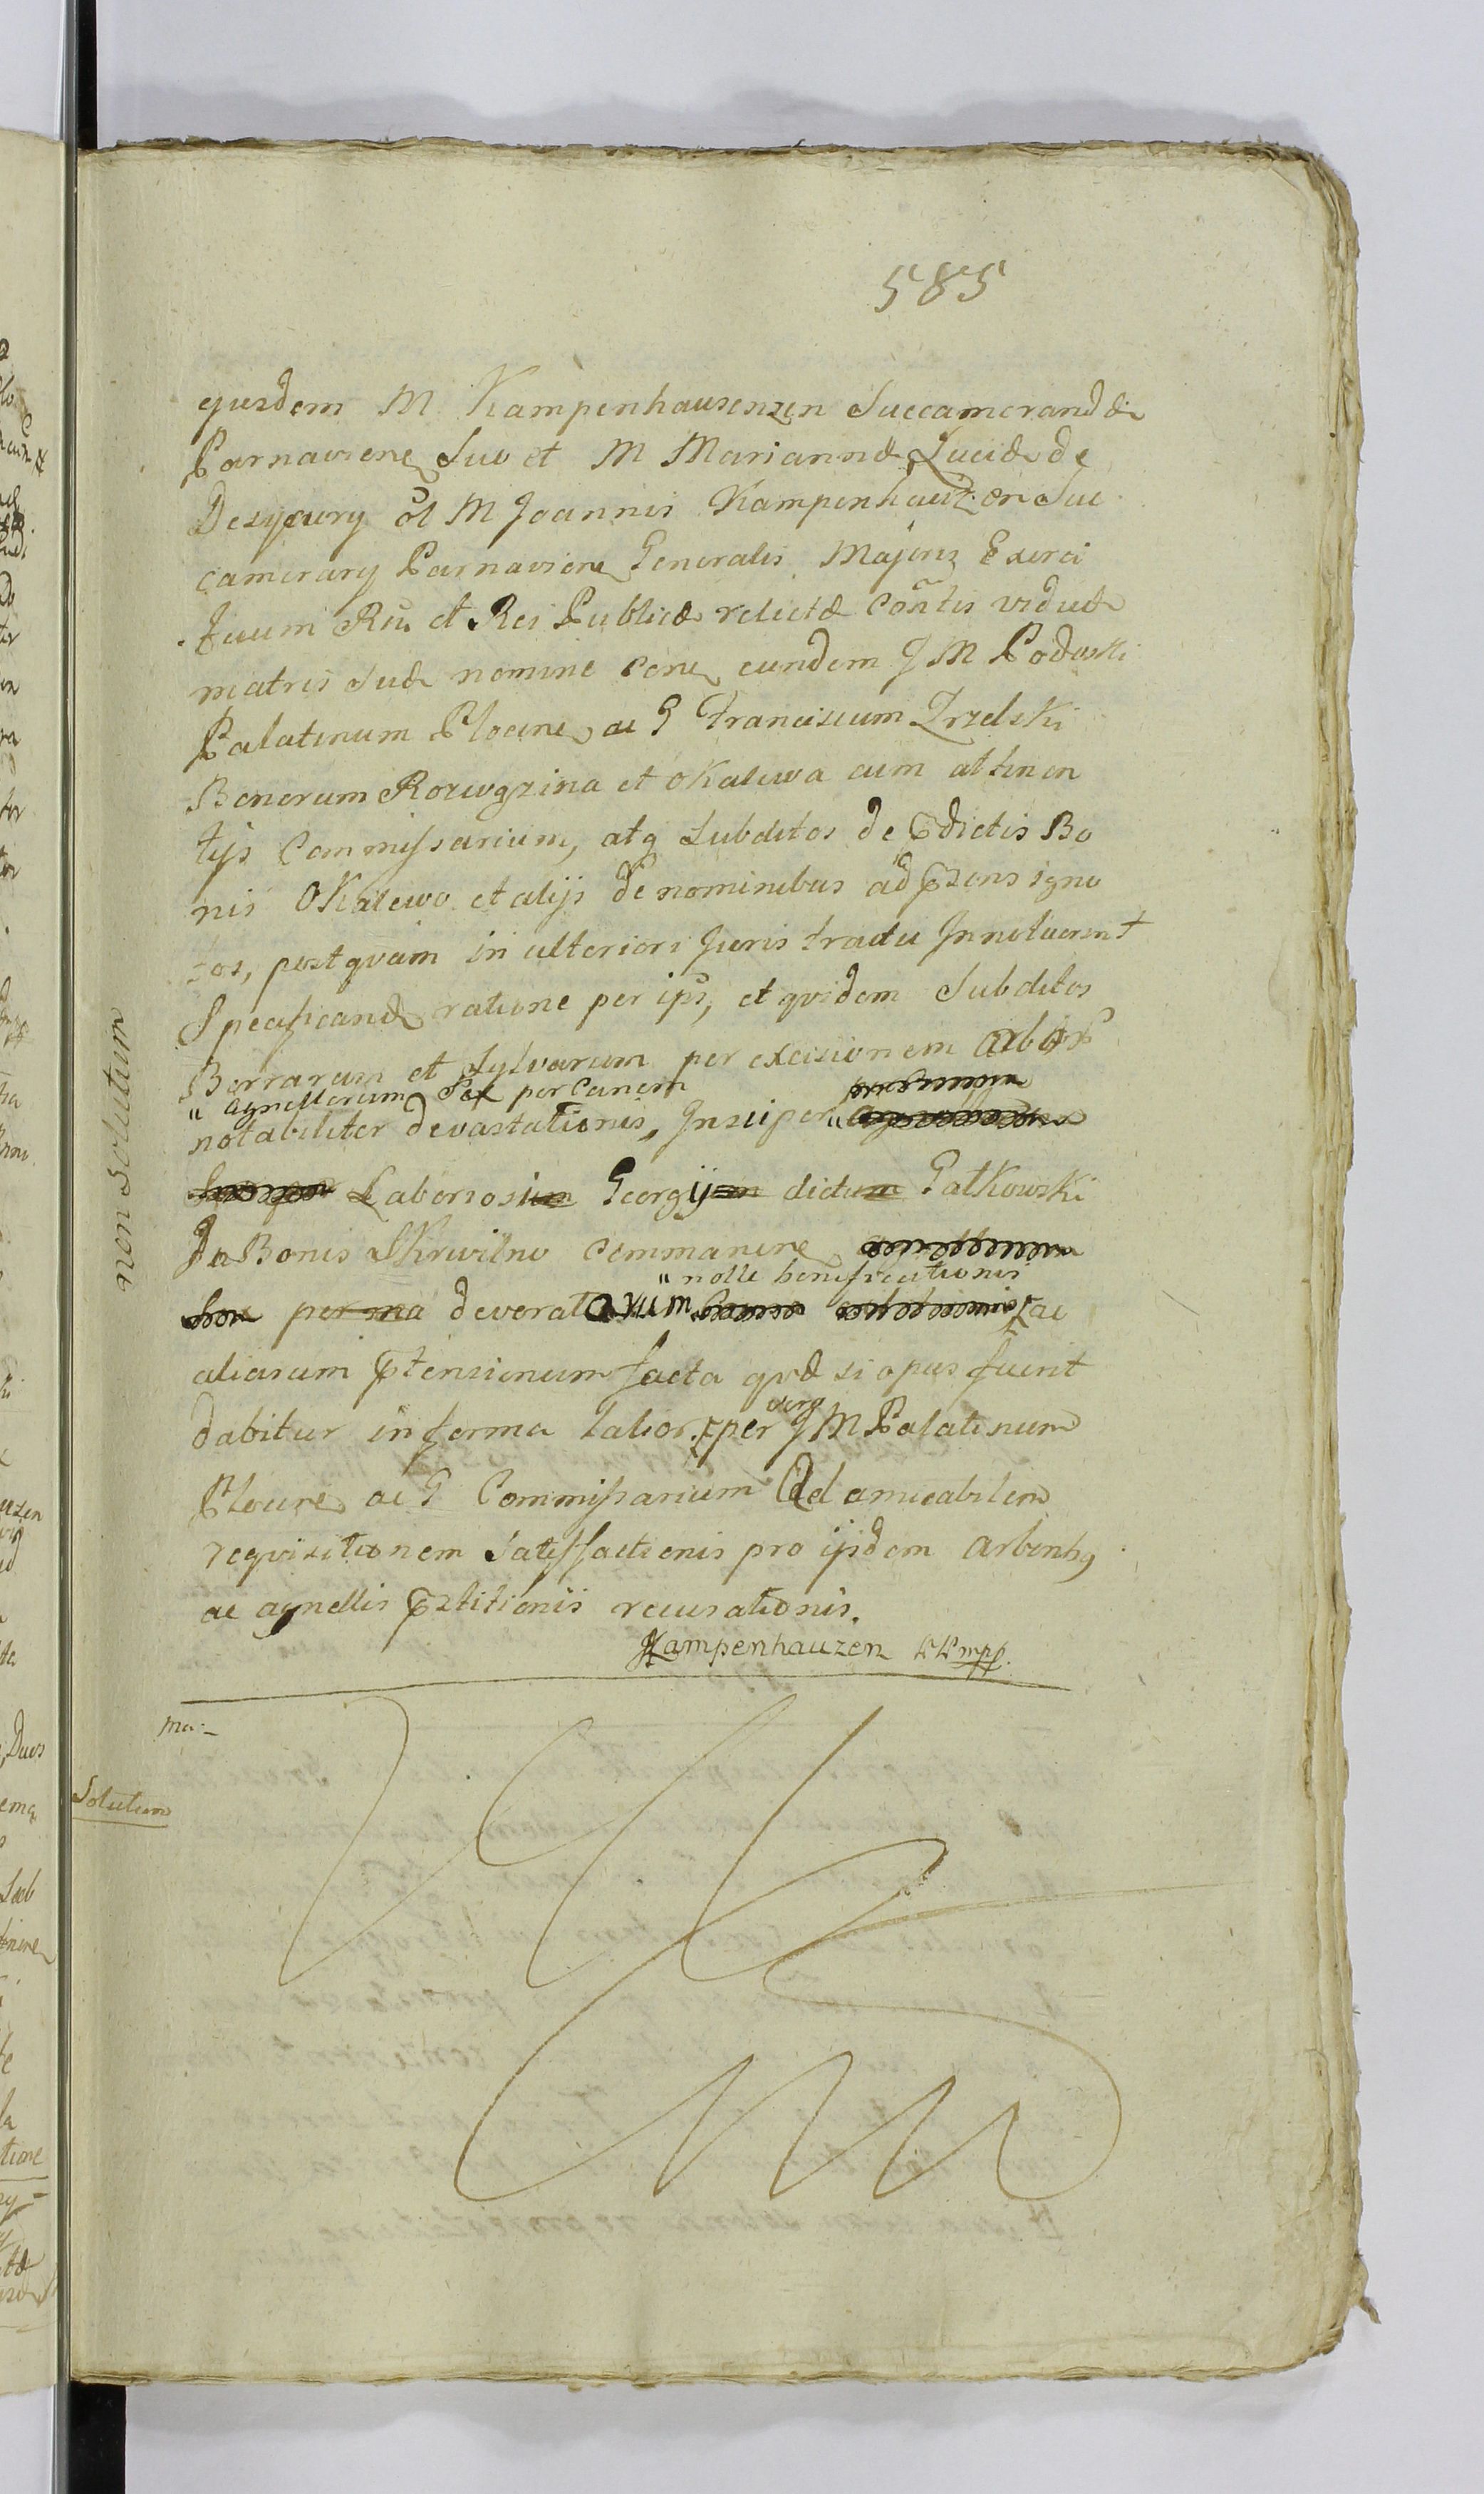 585
ejusdem M Kampenhausenzen Succamerandæ
Parnaviene Suo et M Mariannæ Luciæ de
ol M Joannis Kampenhauzen Suc
camerary Parnaviene Generalis Majoris Exerci
tuum Rni et Rei Publicæ relictæ Contis viduæ
matris Suæ nomine cone eundem J M Podoski
Palatinum Plocene ac G Franciscum Zrzelski
Bonorum et Okalewa cum attinen
tijs Commissarium, atq Subditos de Pdictis Bo
nis Okalewo et alijs de nominibus ad Pzens igno
tos, postqvam in ulteriori Juris tractu Innotuerint
Specificandæ ratione per ips, et qvidem Subditos
Borrarum et Sylvarum per excisionem arbor
" agnellorum Sex per Canem
notabiliter devastationis, Insuper
Laboriosum Georgij dictum Gatkowski
De Bonis Skrwilno Commanene
" nolle bonificationis
per ma devoratarum ac
aliarum Ptensionum facta qvæ si opus fuerit
vero
dabitur in forma Latior. per J M Palatinum
Plocene ac G Commissarium ad amicabilem
reqvisitionem Satisfactionis pro ijsdem arboribq
ac agnellis Pztitionis recusationis.
Kampenhauzen mpp.
non Solutum
Ma:-
Solutum